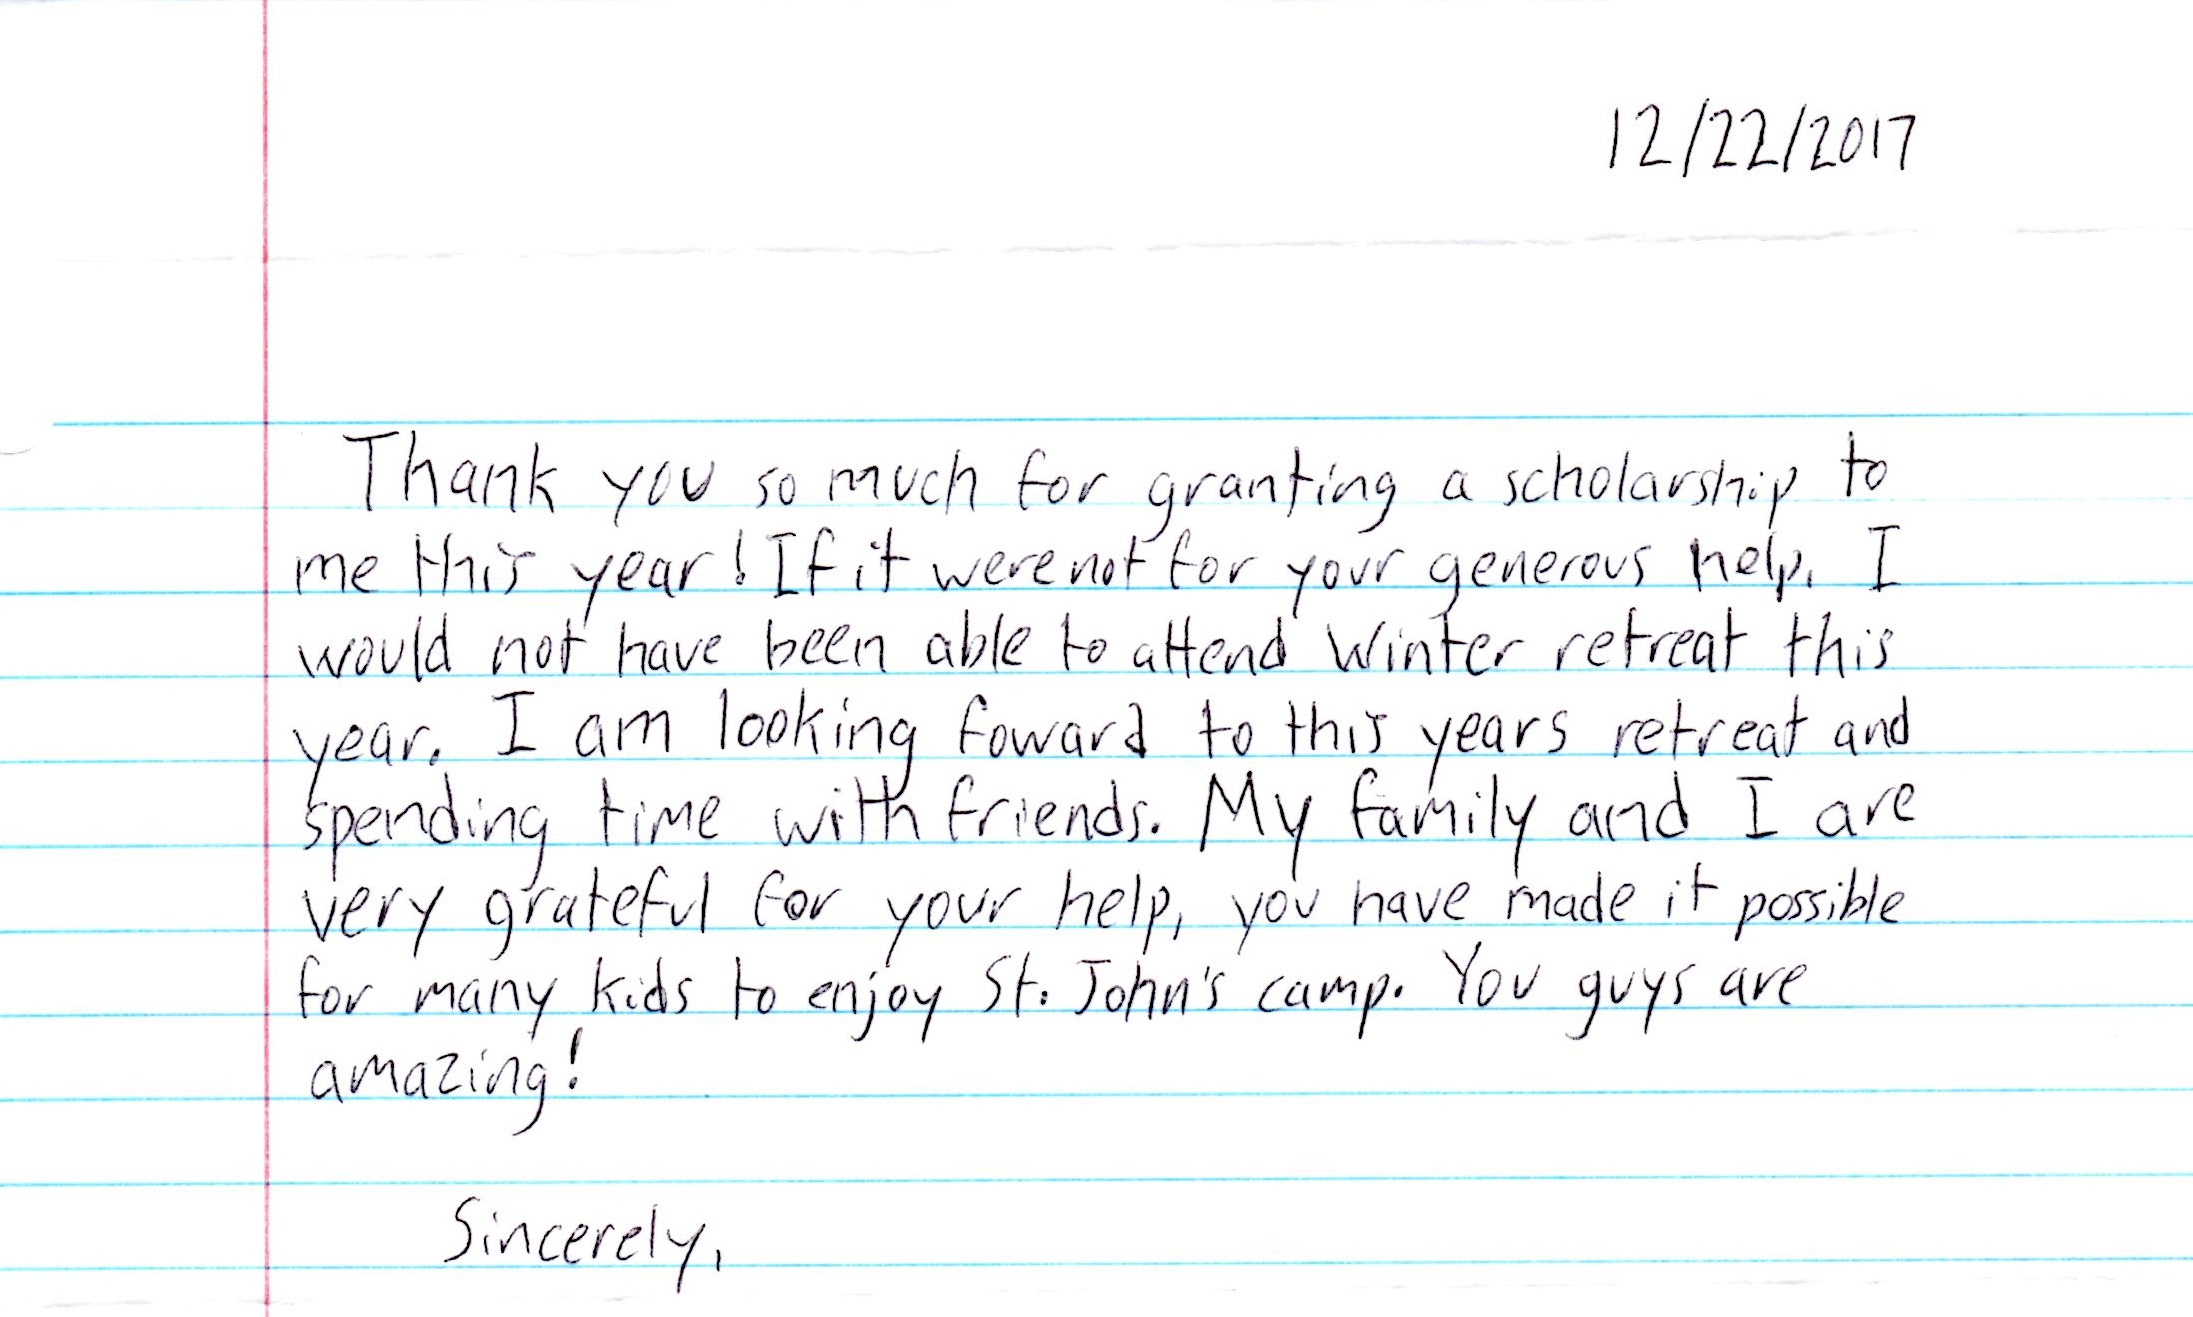 12/22/2017
Thank you so much for granting a scholarship to
me this year! If it were not for your generous help, I
would not have been able to attend Winter retreat this
year. I am looking foward to this years retreat and
spending time with friends. My family and I are
very grateful for your help, you have made it possible
for many kids to enjoy St. John's camp. You guys are
amazing!
Sincerely,